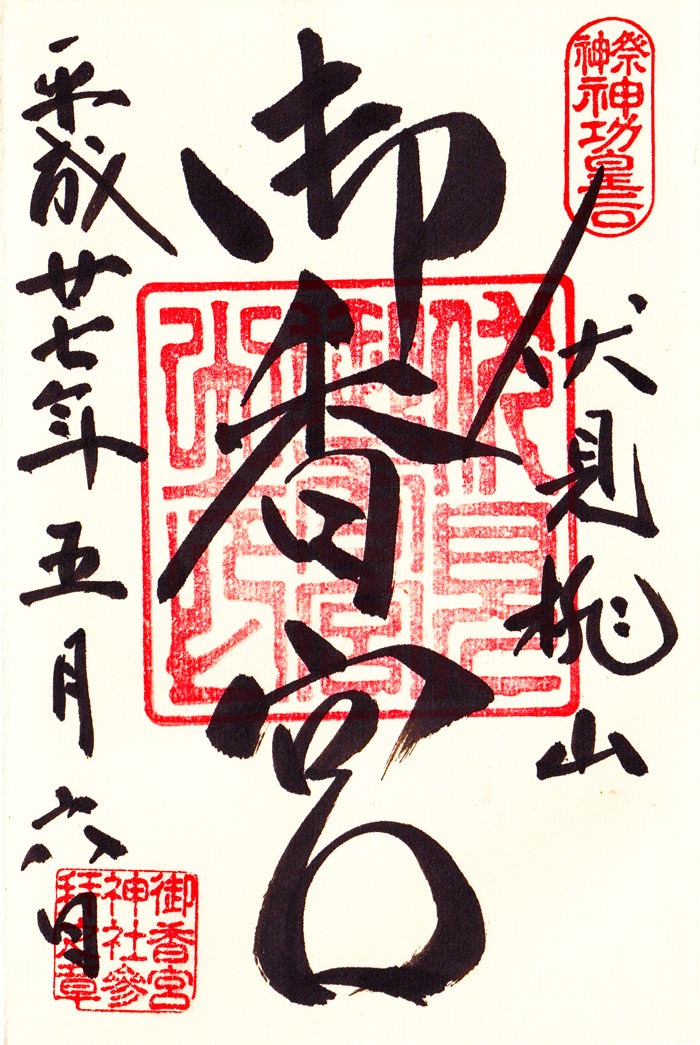 祭神
神功皇后
伏見桃山
御香宮
平成廿七年五月六日
御香宮
神社參